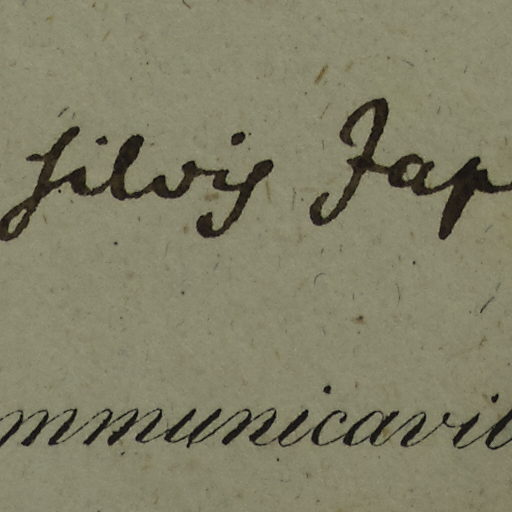 silvis Jap
mmunicavit